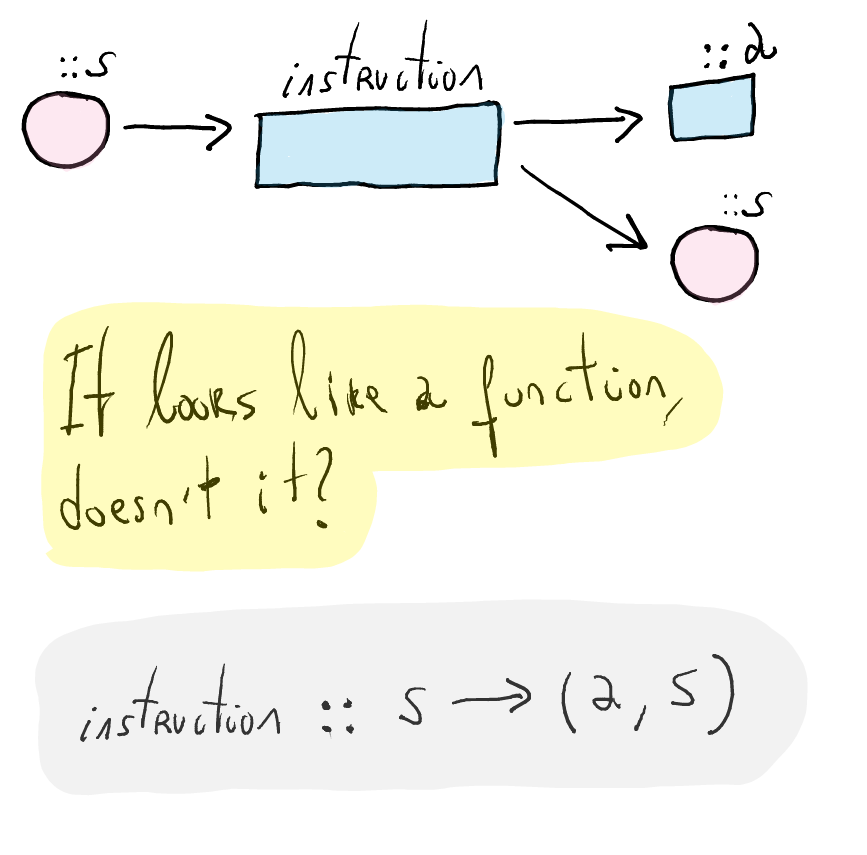 ::s
instruction
::a
::s
It looks like a function,
doesn't it?
instruction :: s → (a, s)